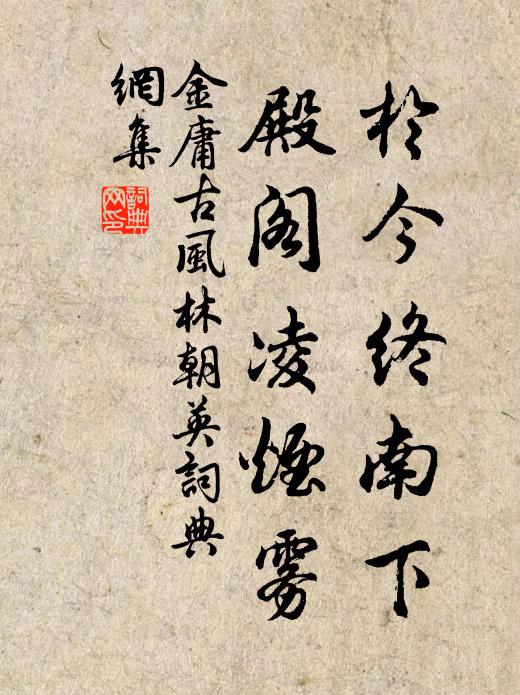 於今終南下
殿阁凌煙雾
金庸古風林朝英詞典
網集
詞典網印